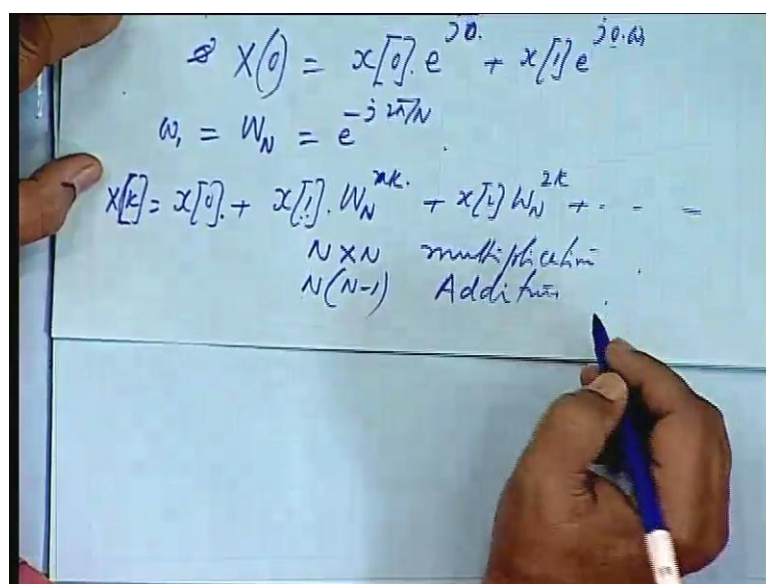 X(0) = x[0]. e^{j0.} + x[1] e^{j0.ω_1}
ω_1 = W_N = e^{-j2π/N}.
X[k] = x[0]. + x[1]. W_N^{nk.} + x[2] W_N^{2k} + . - - =
N × N multiplication
N(N-1) Addition